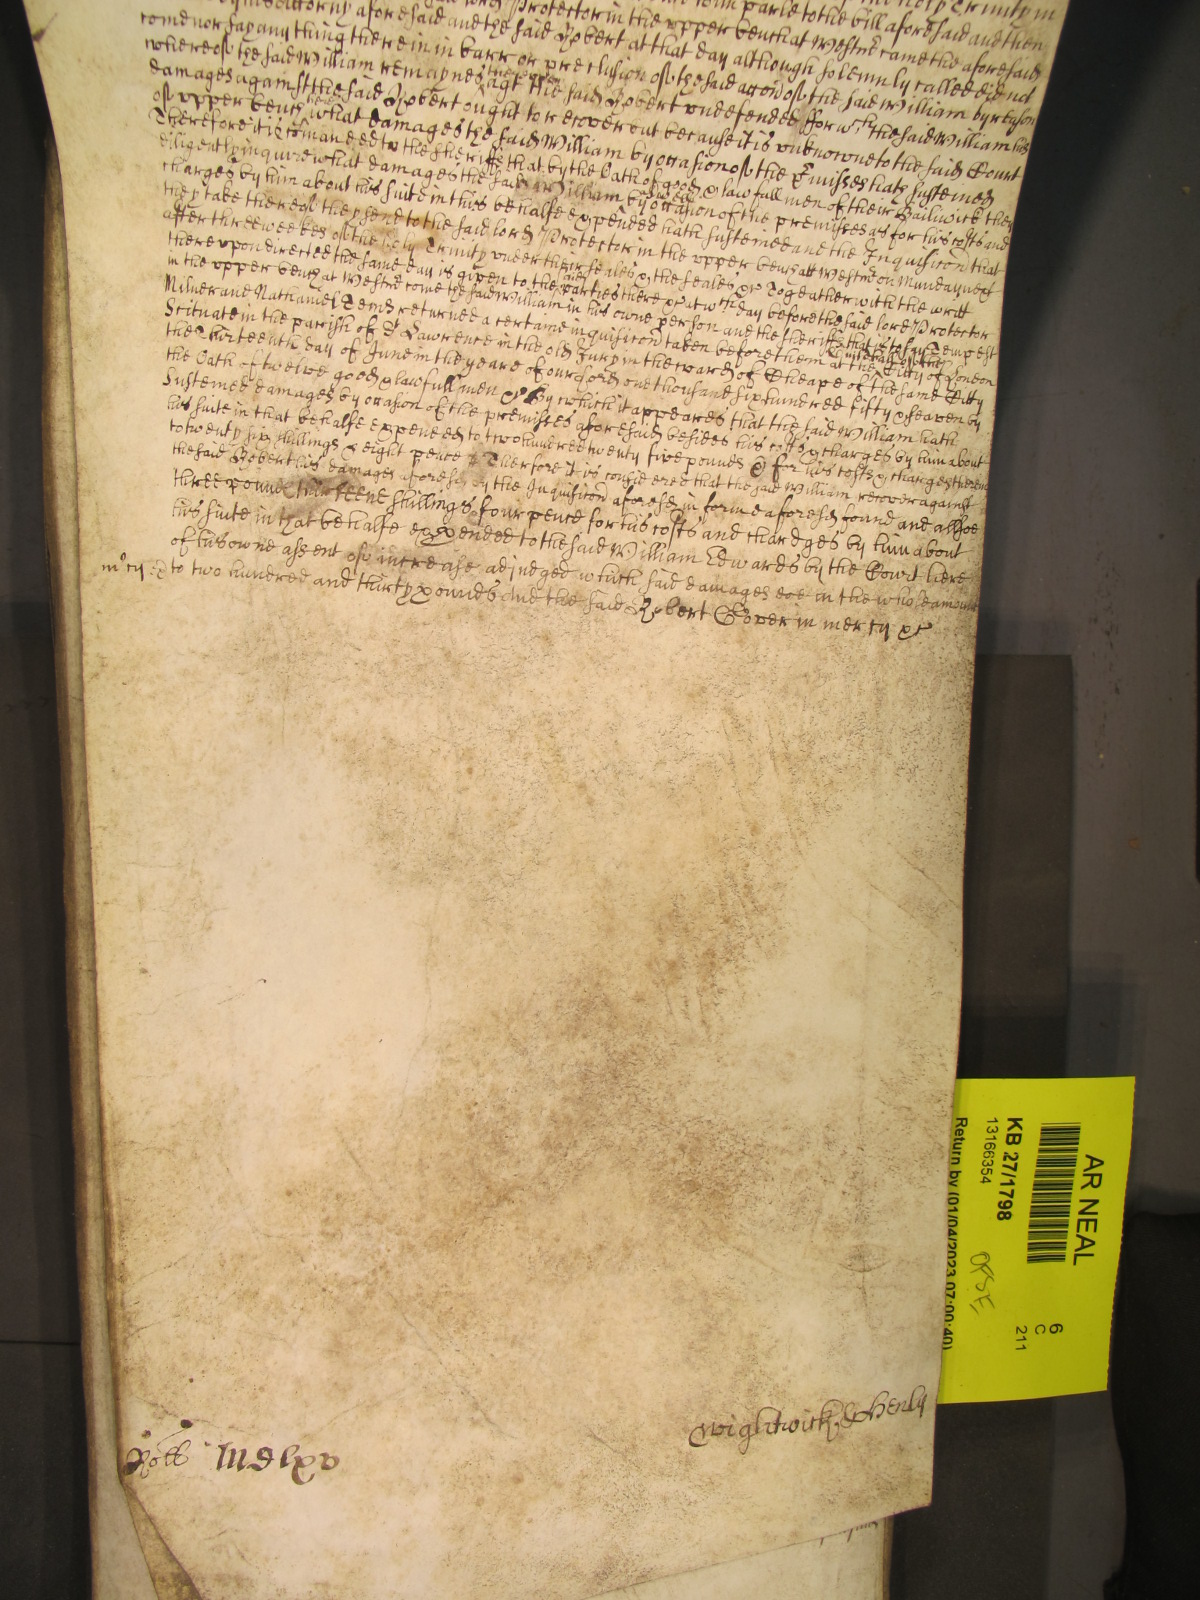 the holy Trinity in
Protector in the upper bench at Westmr came the aforesaid
Attorny aforesaid and the said Robert at that day although solemnly called did not
come nor say any thing therein in barr or preclusion of the said accon of the said William by reason
whereof the said William remaynes therein agt the said Robert undefended ffor wch the said William his
damages against the said Robert ought to recover but because it is unknowne to the said Court
of upper bench here what damages the said William by occasion of the Premisses hath susteined
Therefore it is comanded to the Sheriffs that by the Oath of good & lawfull men of their Bailiwick they
diligently inquire what damages the said William by occasion of the premisses as for his costs and
charges by him about his suite in this behalfe expended hath susteined and the Inquisicon that
they take thereof they send to the said lord Protector in the upper bench att Westmr on Munday next
after three weekes of the holy Trinity under their seales & the seales &c Togeather with the writt
there upon directed the same day is given to the said parties there &c at wch day before the said lord Protector
in the upper bench at Westmr come the said William in his owne person and the sheriffs that is to say Tempest
Milner and Nathaniel Temms returned a certaine inquisicon taken before them at the Guildhall of the City of London
Scituate in the parish of St Lawrence in the old Jury in the ward of Cheape of the same Citty
the thirteenth day of June in the yeare of our Lord one thousand six hundred fifty & seaven by
the Oath of twelve good & lawfull men &c By which it appeares that the said William hath
Susteined damages by occasion of the premisses aforesaid besides his costs & charges by him about
his suite in that behalfe expended to two hundred twenty five pounds & for his costs & charges therein
to twenty six shillings & eight pence Therefore It is considered that the said William recover against
the said Robert his damages aforesd by the Inquisicon aforesd in forme aforesd found and allsoe
three pounds thirteene shillings & four pence for his costs and chardges by him about
his suite in that behalfe expended to the said William Edwards by the Court here
of his owne assent of increase adjudged which said damages doe in the whole amount
to two hundred and thirty pounds and the said Robert Coper in mercy &c
Wightwick & Henly
Rott MDlxv
AR NEAL
6
C
211
KB 27/1798
13166354
Return by (01/04/2023 07:00:40)